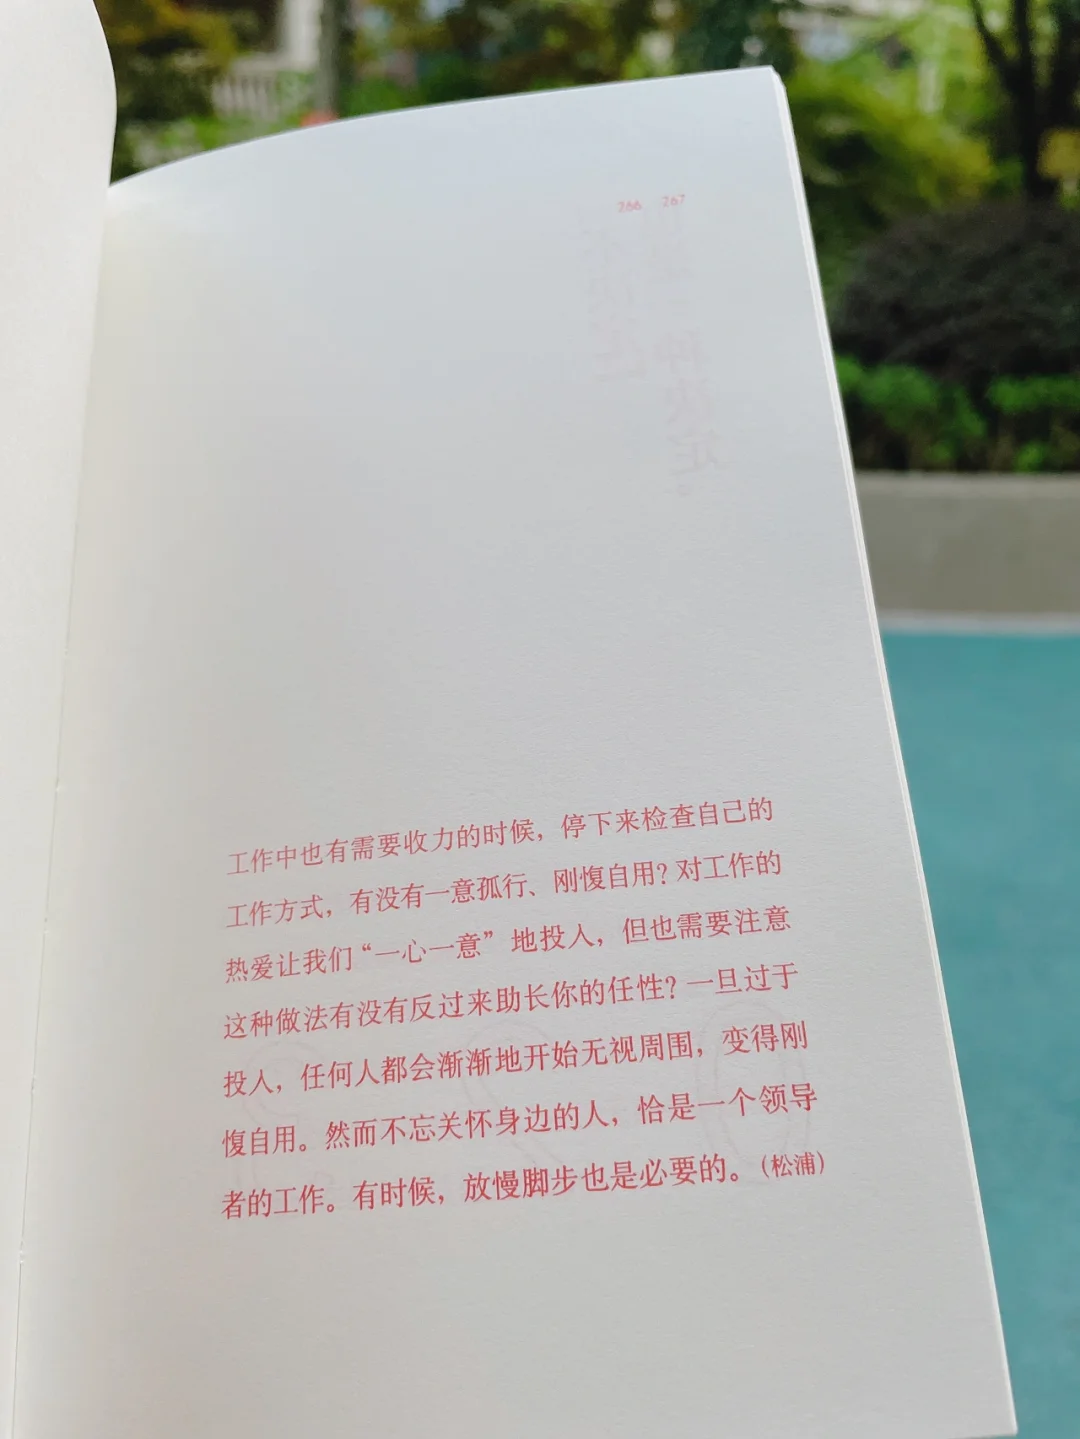 266 267
工作中也有需要收力的时候，停下来检查自己的
工作方式，有没有一意孤行、刚愎自用？对工作的
热爱让我们“一心一意”地投入，但也需要注意
这种做法有没有反过来助长你的任性？一旦过于
投入，任何人都会渐渐地开始无视周围，变得刚
愎自用。然而不忘关怀身边的人，恰是一个领导
者的工作。有时候，放慢脚步也是必要的。（松浦）